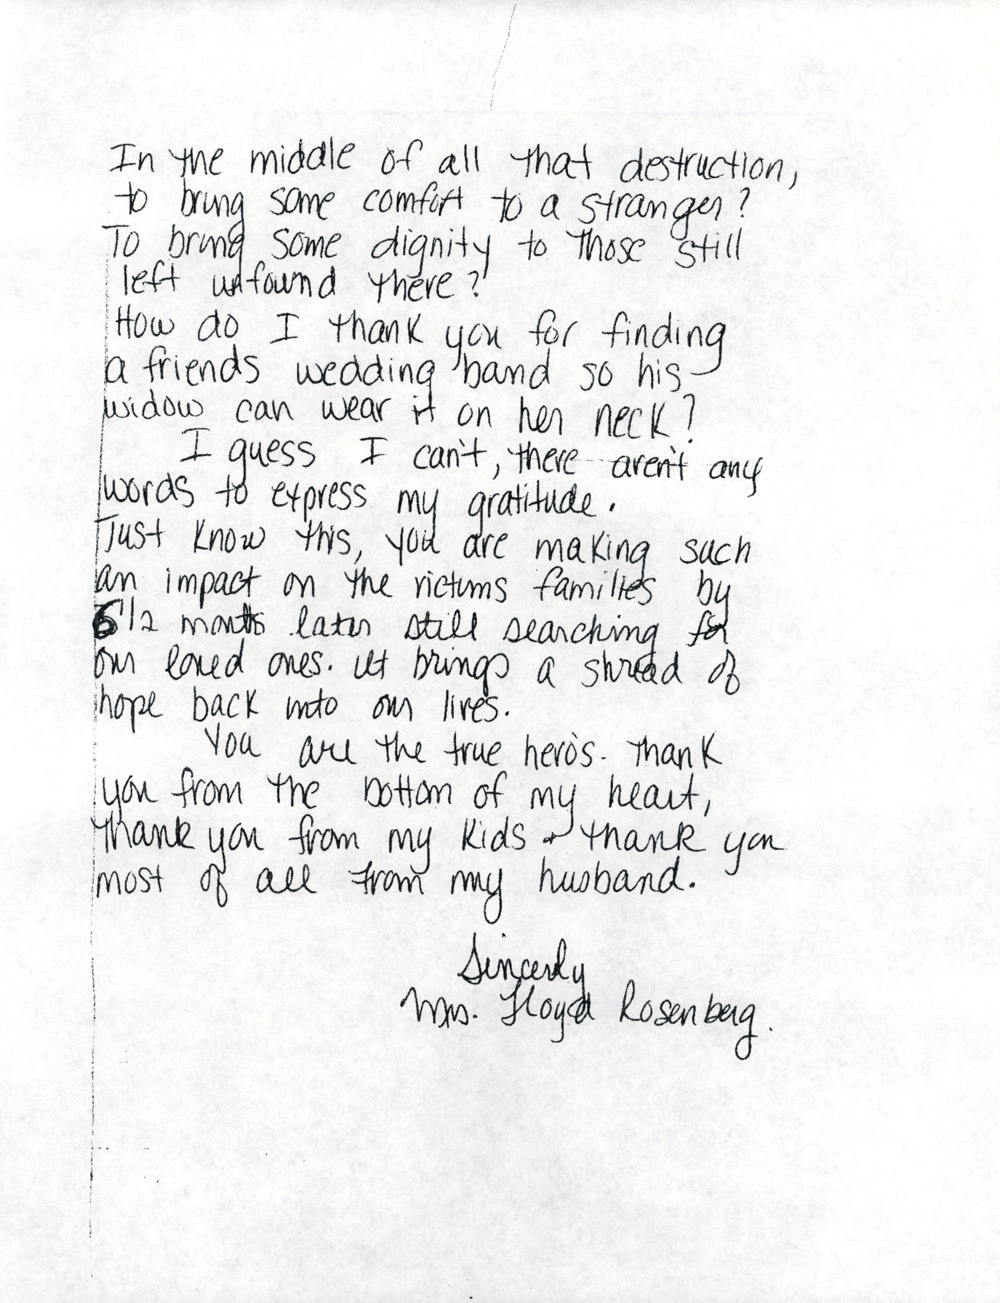 In the middle of all that destruction,
to bring some comfort to a stranger?
To bring some dignity to those still
left unfound there?
How do I thank you for finding
a friends wedding band so his
widow can wear it on her neck?
I guess I can't, there aren't any
words to express my gratitude.
Just know this, you are making such
an impact on the victims families by
6 1/2 months later still searching for
our loved ones. It brings a shread of
hope back into our lives.
You are the true hero's. Thank
you from the bottom of my heart,
thank you from my kids & thank you
most of all from my husband.
Sincerly
Mrs. Floyd Rosenberg.